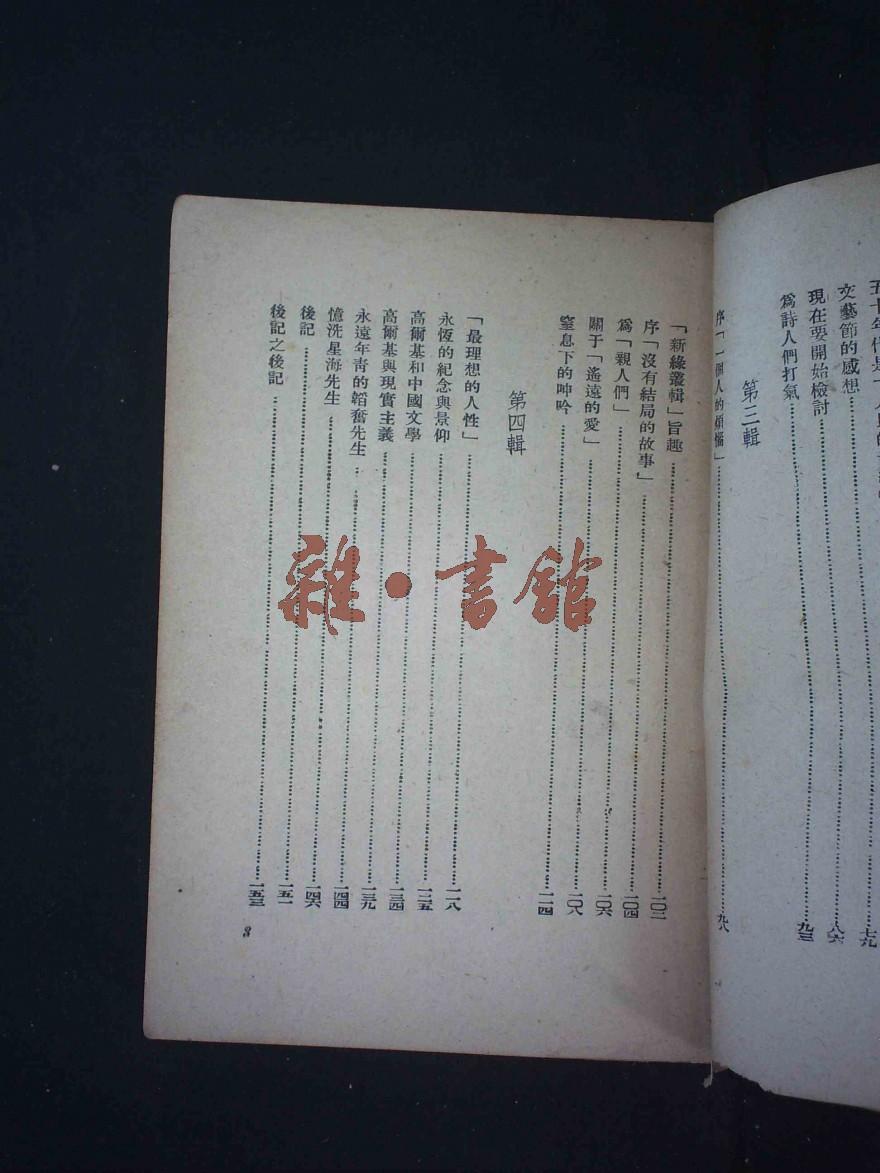 五十年代是
文藝節的感想……七九
現在要開始檢討……八六
為詩人們打氣……九三
第三輯
序「一個人的煩惱」……九八
「新綠叢輯」旨趣……一〇二
序「沒有結局的故事」……一〇四
為「親人們」……一〇六
關于「遙遠的愛」……一〇八
窒息下的呻吟……一一四
第四輯
「最理想的人性」……一一八
永恆的紀念與景仰……一二五
高爾基和中國文學……一三四
高爾基與現實主義……一三九
永遠年青的韜奮先生……一四四
憶洗星海先生……一四六
後記……一五一
後記之後記……一五三
3
雜·書館